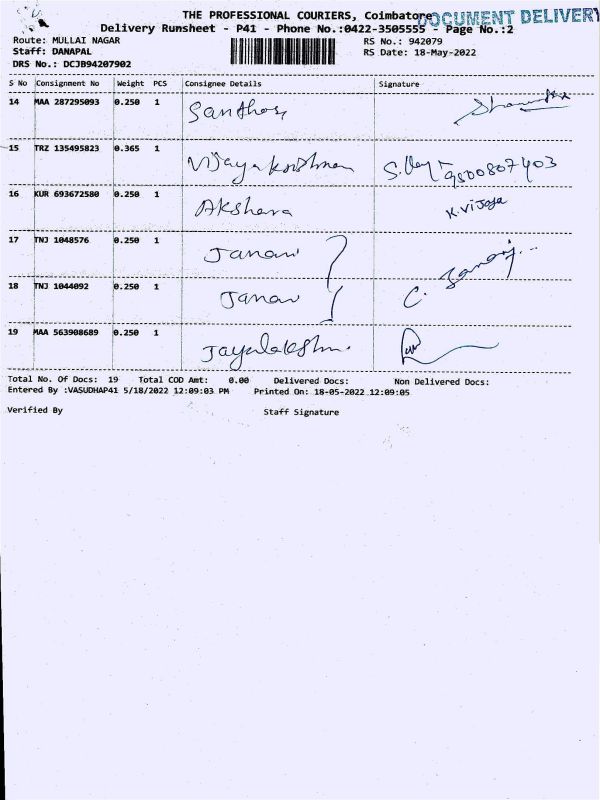 THE PROFESSIONAL COURIERS, Coimbatore
DOCUMENT DELIVERY
Delivery Runsheet - P41 - Phone No.:0422-3505555 - Page No.:2
Route: MULLAI NAGAR
RS No.: 942079
Staff: DANAPAL
RS Date: 18-May-2022
DRS No.: DCJB94207902
S No Consignment No Weight PCS Consignee Details Signature
14 MAA 287295093 0.250 1 Santhos
15 TRZ 135495823 0.365 1 Vijayakrishnan S. 9500807403
16 KUR 693672580 0.250 1 Akshara K.Vijaya
17 TNJ 1048576 0.250 1 Janani
18 TNJ 1044092 0.250 1 Janani C.
19 MAA 563908689 0.250 1 Jayalakshmi.
Total No. Of Docs: 19 Total COD Amt: 0.00 Delivered Docs: Non Delivered Docs:
Entered By :VASUDHAP41 5/18/2022 12:09:03 PM Printed On: 18-05-2022 12:09:05
Verified By Staff Signature